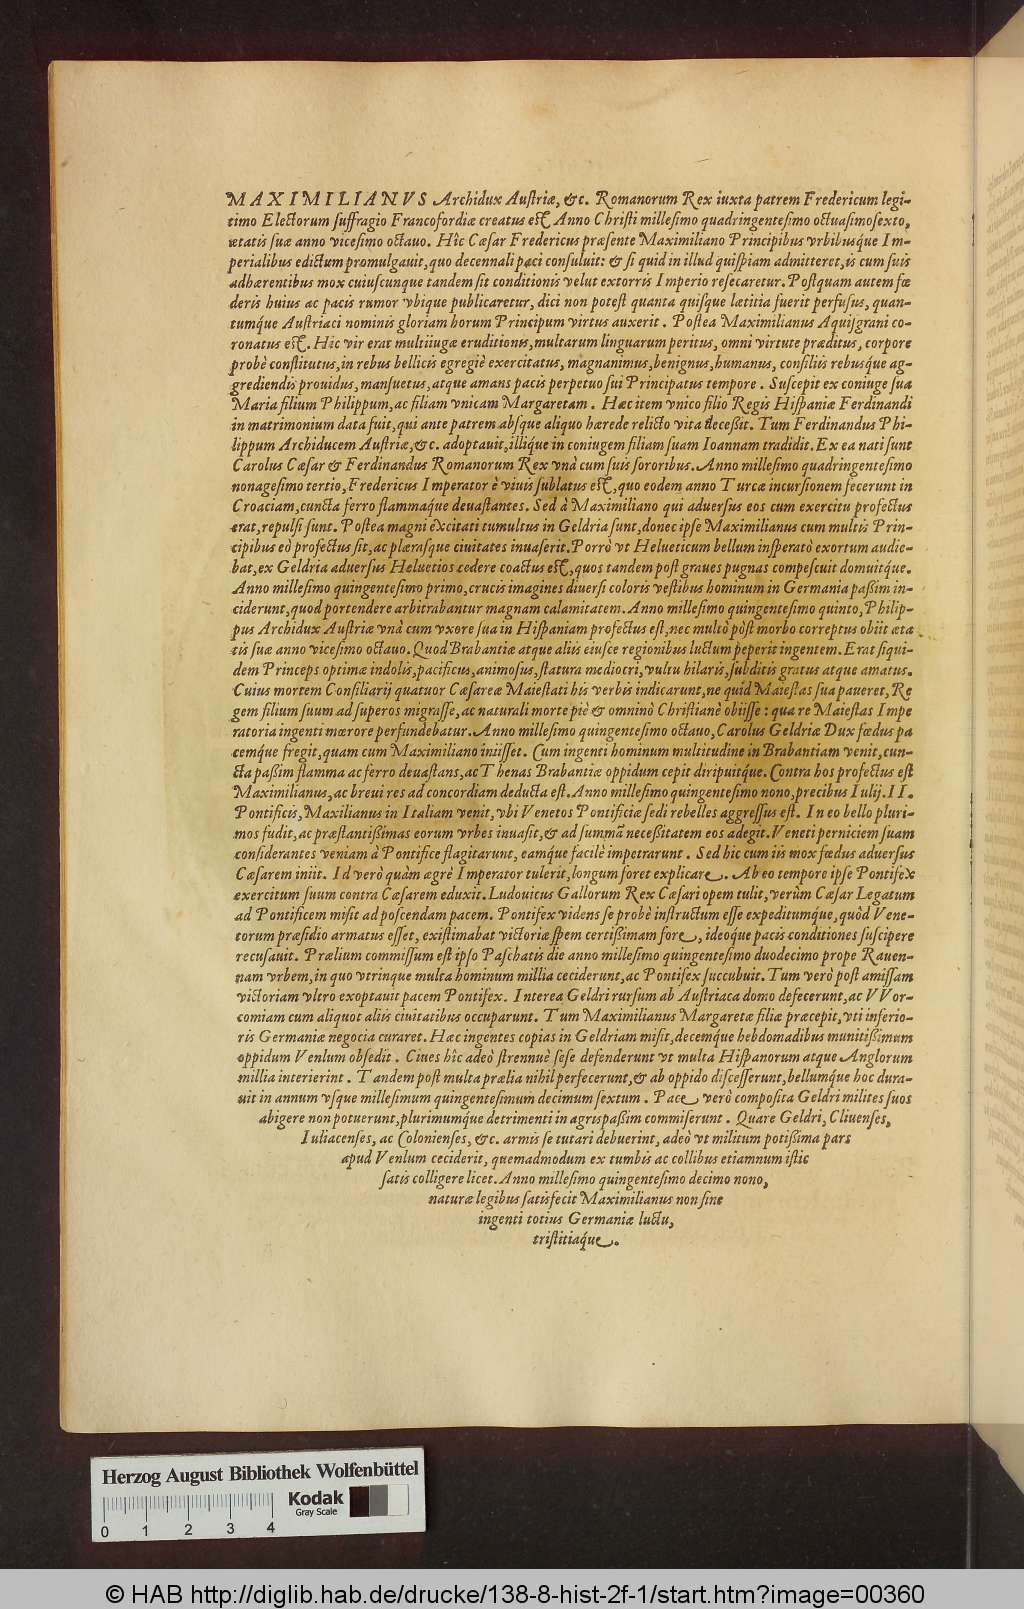 MAXIMILIANVS Archidux Austriæ, &c. Romanorum Rex iuxta patrem Fredericum legi-
timo Electorum suffragio Francofordiæ creatus est Anno Christi millesimo quadringentesimo octuasimosexto,
ætatis suæ anno vicesimo octauo. Hîc Cæsar Fredericus præsente Maximiliano Principibus vrbibusque Im-
perialibus edictum promulgauit, quo decennali paci consuluit: & si quid in illud quispiam admitteret, is cum suis
adhærentibus mox cuiuscunque tandem sit conditionis velut extorris Imperio resecaretur. Postquam autem fœ
deris huius ac pacis rumor vbique publicaretur, dici non potest quanta quisque lætitia fuerit perfusus, quan-
tumq́ue Austriaci nominis gloriam horum Principum virtus auxerit. Postea Maximilianus Aquisgrani co-
ronatus est. Hic vir erat multiiugæ eruditionis, multarum linguarum peritus, omni virtute præditus, corpore
probè constitutus, in rebus bellicis egregiè exercitatus, magnanimus, benignus, humanus, consiliis rebusq́ue ag-
grediendis prouidus, mansuetus, atque amans pacis perpetuo sui Principatus tempore. Suscepit ex coniuge sua
Maria filium Philippum, ac filiam vnicam Margaretam. Hæc item vnico filio Regis Hispaniæ Ferdinandi
in matrimonium data fuit, qui ante patrem absque aliquo hærede relicto vita decessit. Tum Ferdinandus Phi-
lippum Archiducem Austriæ, &c. adoptauit, illique in coniugem filiam suam Ioannam tradidit. Ex ea nati sunt
Carolus Cæsar & Ferdinandus Romanorum Rex vnà cum suis sororibus. Anno millesimo quadringentesimo
nonagesimo tertio, Fredericus Imperator è viuis sublatus est, quo eodem anno Turcæ incursionem fecerunt in
Croaciam, cuncta ferro flammaque deuastantes. Sed à Maximiliano qui aduersus eos cum exercitu profectus
erat, repulsi sunt. Postea magni excitati tumultus in Geldria sunt, donec ipse Maximilianus cum multis Prin-
cipibus eò profectus sit, ac plærasque ciuitates inuaserit. Porrò vt Helueticum bellum insperatò exortum audie-
bat, ex Geldria aduersus Heluetios cedere coactus est, quos tandem post graues pugnas compescuit domuitque.
Anno millesimo quingentesimo primo, crucis imagines diuersi coloris vestibus hominum in Germania paßim in-
ciderunt, quod portendere arbitrabantur magnam calamitatem. Anno millesimo quingentesimo quinto, Philip-
pus Archidux Austriæ vnà cum vxore sua in Hispaniam profectus est, nec multò pòst morbo correptus obiit æta
tis suæ anno vicesimo octauo. Quod Brabantiæ atque aliis eiusce regionibus luctum peperit ingentem. Erat siqui-
dem Princeps optimæ indolis, pacificus, animosus, statura mediocri, vultu hilaris, subditis gratus atque amatus.
Cuius mortem Consiliarij quatuor Cæsareæ Maiestati his verbis indicarunt, ne quid Maiestas sua paueret, Re
gem filium suum ad superos migrasse, ac naturali morte piè & omninò Christianè obiisse: qua re Maiestas Impe
ratoria ingenti mœrore perfundebatur. Anno millesimo quingentesimo octauo, Carolus Geldriæ Dux fœdus pa
cemque fregit, quam cum Maximiliano iniisset. Cum ingenti hominum multitudine in Brabantiam venit, cun-
cta paßim flamma ac ferro deuastans, ac Thenas Brabantiæ oppidum cepit diripuitque. Contra hos profectus est
Maximilianus, ac breui res ad concordiam deducta est. Anno millesimo quingentesimo nono, precibus Iulij. II.
Pontificis, Maxilianus in Italiam venit, vbi Venetos Pontificiæ sedi rebelles aggressus est. In eo bello pluri-
mos fudit, ac præstantißimas eorum vrbes inuasit, & ad summã necessitatem eos adegit. Veneti perniciem suam
considerantes veniam à Pontifice flagitarunt, eamq́ue facilè impetrarunt. Sed hic cum iis mox fœdus aduersus
Cæsarem iniit. Id verò quàm ægrè Imperator tulerit, longum foret explicare. Ab eo tempore ipse Pontifex
exercitum suum contra Cæsarem eduxit. Ludouicus Gallorum Rex Cæsari opem tulit, verùm Cæsar Legatum
ad Pontificem misit ad poscendam pacem. Pontifex videns se probè instructum esse expeditumq́ue, quòd Vene-
torum præsidio armatus esset, existimabat victoriæ spem certißimam fore, ideoque pacis conditiones suscipere
recusauit. Prælium commissum est ipso Paschatis die anno millesimo quingentesimo duodecimo prope Rauen-
nam vrbem, in quo vtrinque multa hominum millia ceciderunt, ac Pontifex succubuit. Tum verò post amissam
victoriam vltro exoptauit pacem Pontifex. Interea Geldri rursum ab Austriaca domo defecerunt, ac VVor-
comiam cum aliquot aliis ciuitatibus occuparunt. Tum Maximilianus Margaretæ filiæ præcepit, vti inferio-
ris Germaniæ negocia curaret. Hæc ingentes copias in Geldriam misit, decemq́ue hebdomadibus munitißimum
oppidum Venlum obsedit. Ciues hîc adeò strennuè sese defenderunt vt multa Hispanorum atque Anglorum
millia interierint. Tandem post multa prælia nihil perfecerunt, & ab oppido discesserunt, bellumq́ue hoc dura-
uit in annum vsque millesimum quingentesimum decimum sextum. Pace verò composita Geldri milites suos
abigere non potuerunt, plurimumque detrimenti in agris paßim commiserunt. Quare Geldri, Cliuenses,
Iuliacenses, ac Colonienses, &c. armis se tutari debuerint, adeò vt militum potißima pars
apud Venlum ceciderit, quemadmodum ex tumbis ac collibus etiamnum istic
satis colligere licet. Anno millesimo quingentesimo decimo nono,
naturæ legibus satisfecit Maximilianus non sine
ingenti totius Germaniæ luctu,
tristitiaq́ue.
Herzog August Bibliothek Wolfenbüttel
Kodak
Gray Scale
0 1 2 3 4
© HAB http://diglib.hab.de/drucke/138-8-hist-2f-1/start.htm?image=00360